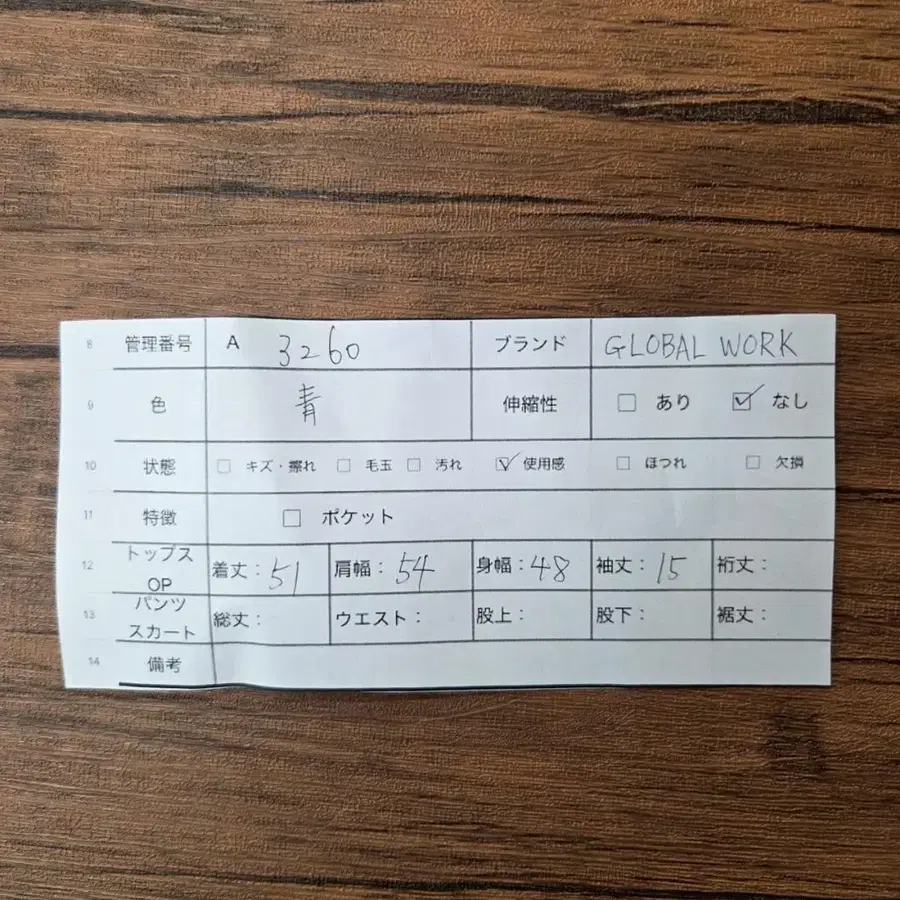 8 管理番号 A 3260 ブランド GLOBAL WORK
9 色 青 伸縮性 □ あり ☑ なし
10 状態 □ キズ・擦れ □ 毛玉 □ 汚れ ☑ 使用感 □ ほつれ □ 欠損
11 特徴 □ ポケット
12 トップス OP 着丈：51 肩幅：54 身幅：48 袖丈：15 裄丈：
13 パンツ スカート 総丈： ウエスト： 股上： 股下： 裾丈：
14 備考